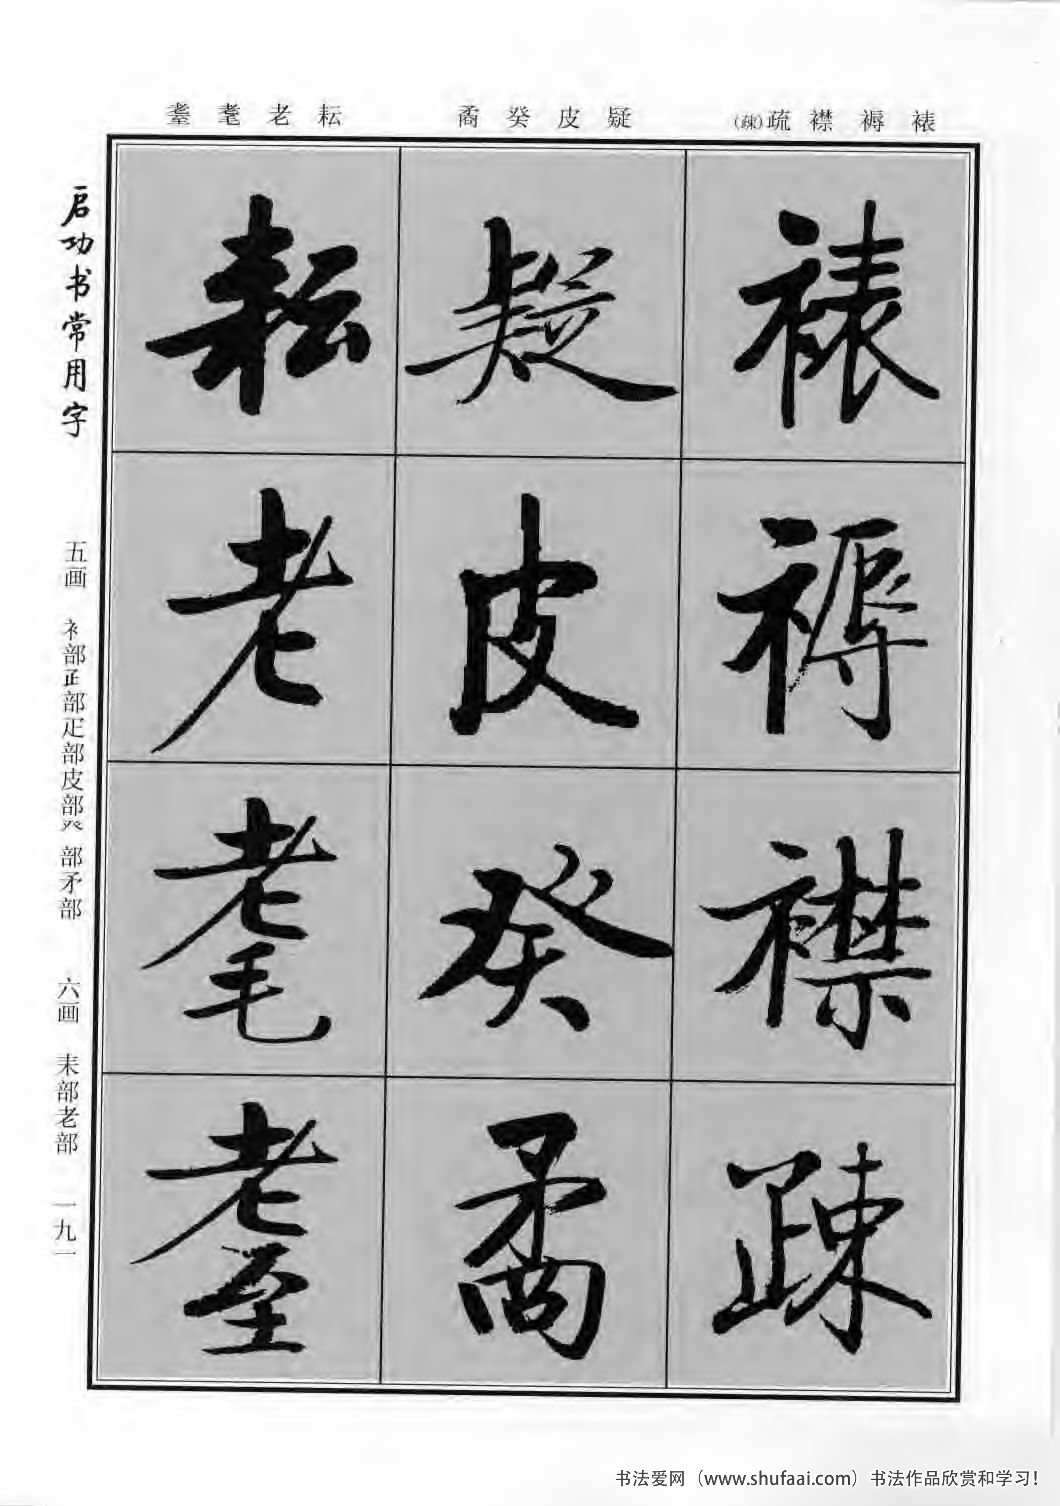 耋耄老耘 矞癸皮疑 (疎)疏襟褥裱
启功书常用字
五画 衤部𤴔部疋部皮部癶部矛部 六画 耒部老部 一九一
裱褥襟疎
疑皮癸矞
耘老耄耋
书法爱网（www.shufaai.com）书法作品欣赏和学习！